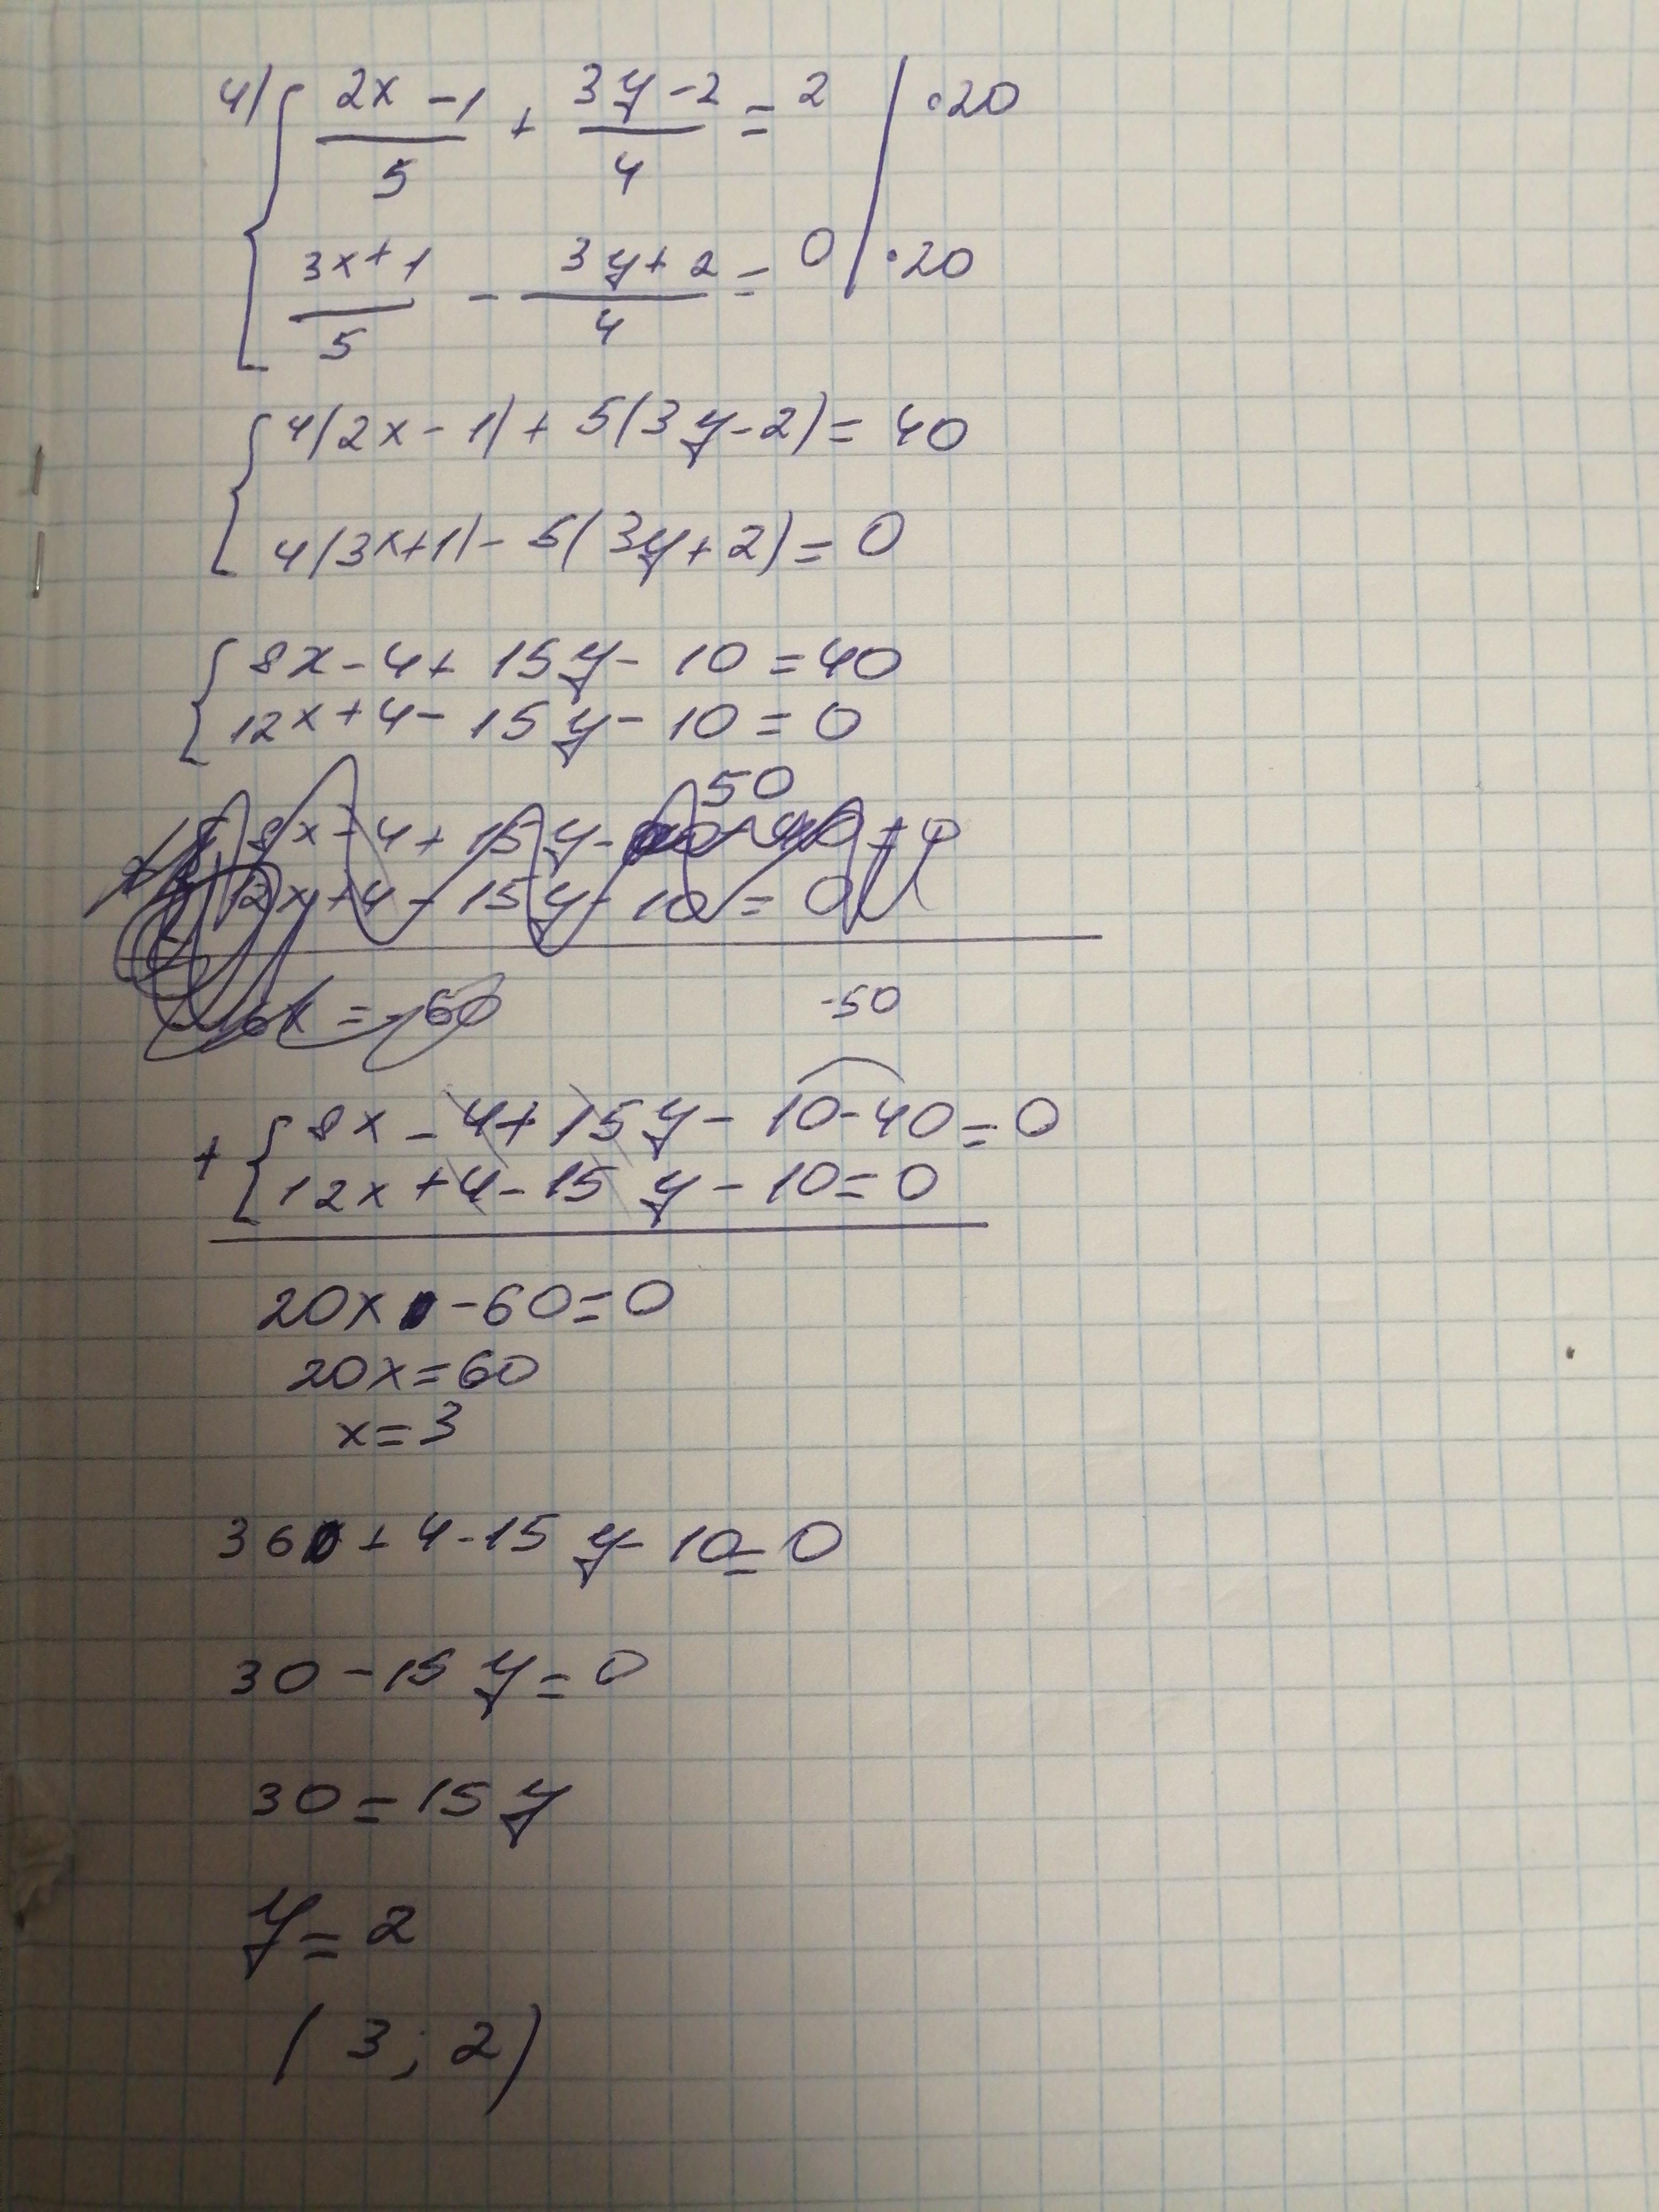 4) { (2x - 1)/5 + (3y - 2)/4 = 2 | ·20
(3x + 1)/5 - (3y + 2)/4 = 0 | ·20
{ 4(2x - 1) + 5(3y - 2) = 40
4(3x + 1) - 5(3y + 2) = 0
{ 8x - 4 + 15y - 10 = 40
12x + 4 - 15y - 10 = 0
50
8x - 4 + 15y -
12x + 4 - 15y - 10 = 0
6x = - 60
-50
+ { 8x - 4 + 15y - 10 - 40 = 0
12x + 4 - 15y - 10 = 0
20x - 60 = 0
20x = 60
x = 3
36 + 4 - 15y - 10 = 0
30 - 15y = 0
30 = 15y
y = 2
(3; 2)